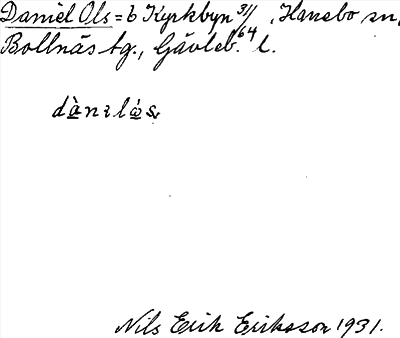 Daniel Ols = b Kyrkbyn 3/1 64, Hanebo sn,
Bollnäs tg., Gävleb. l.
dànɪlás
Nils Erik Eriksson 1931.